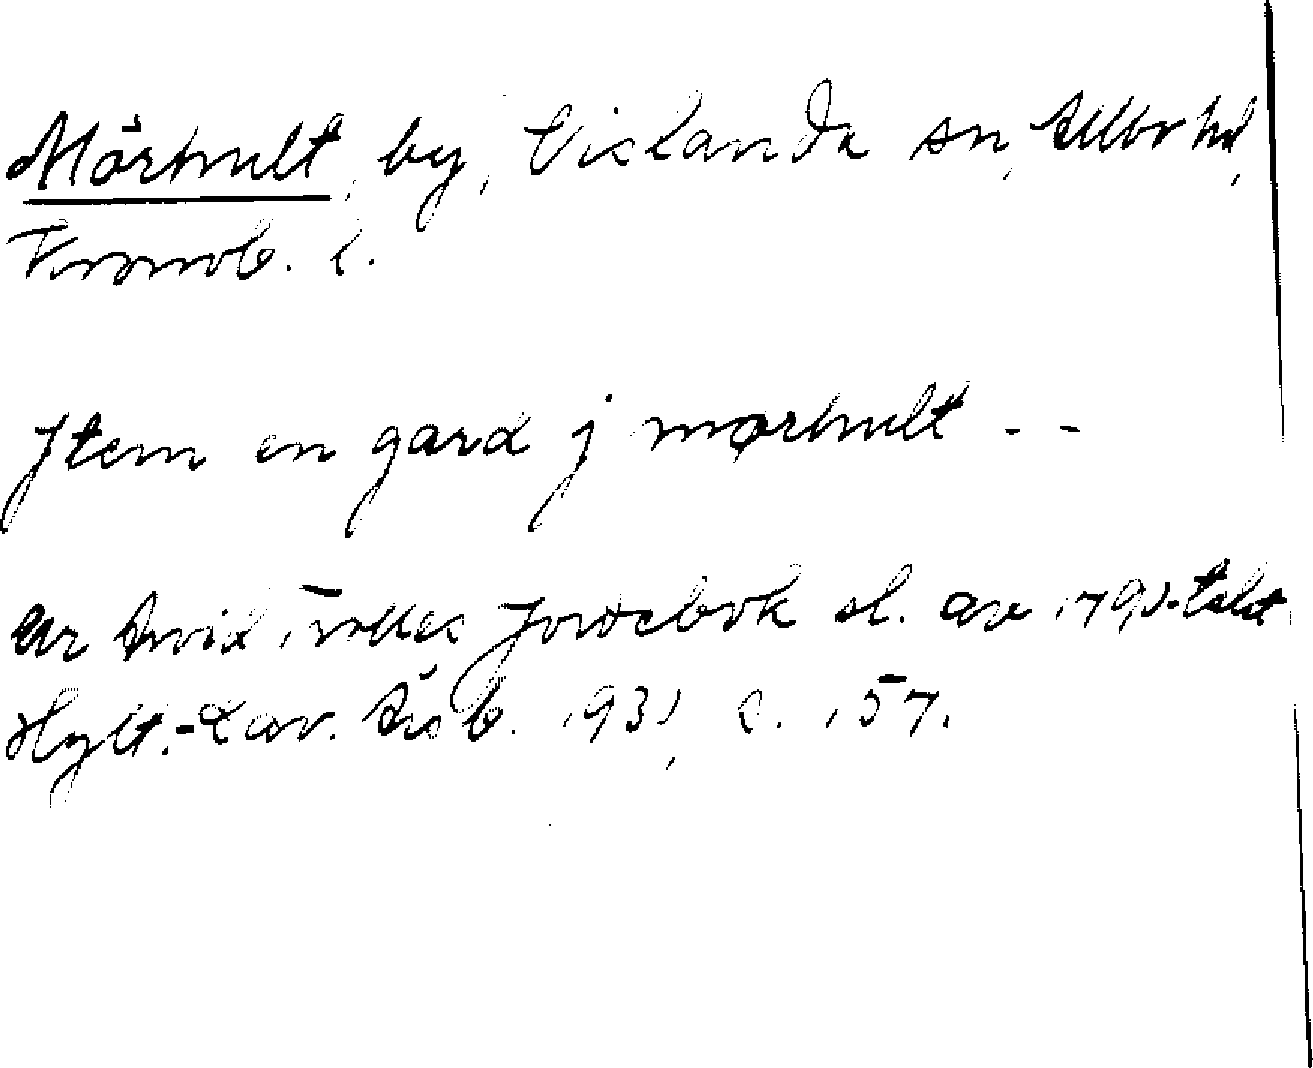 Mörhult, by, Vislanda sn, Allbo hd,
Kronob. l.
Jtem en gard j mørhult - -
Ur Arvid Trolles Jordebok sl. av 1490-talet
Hylt.-Cav. Årsb. 1931, s. 157.